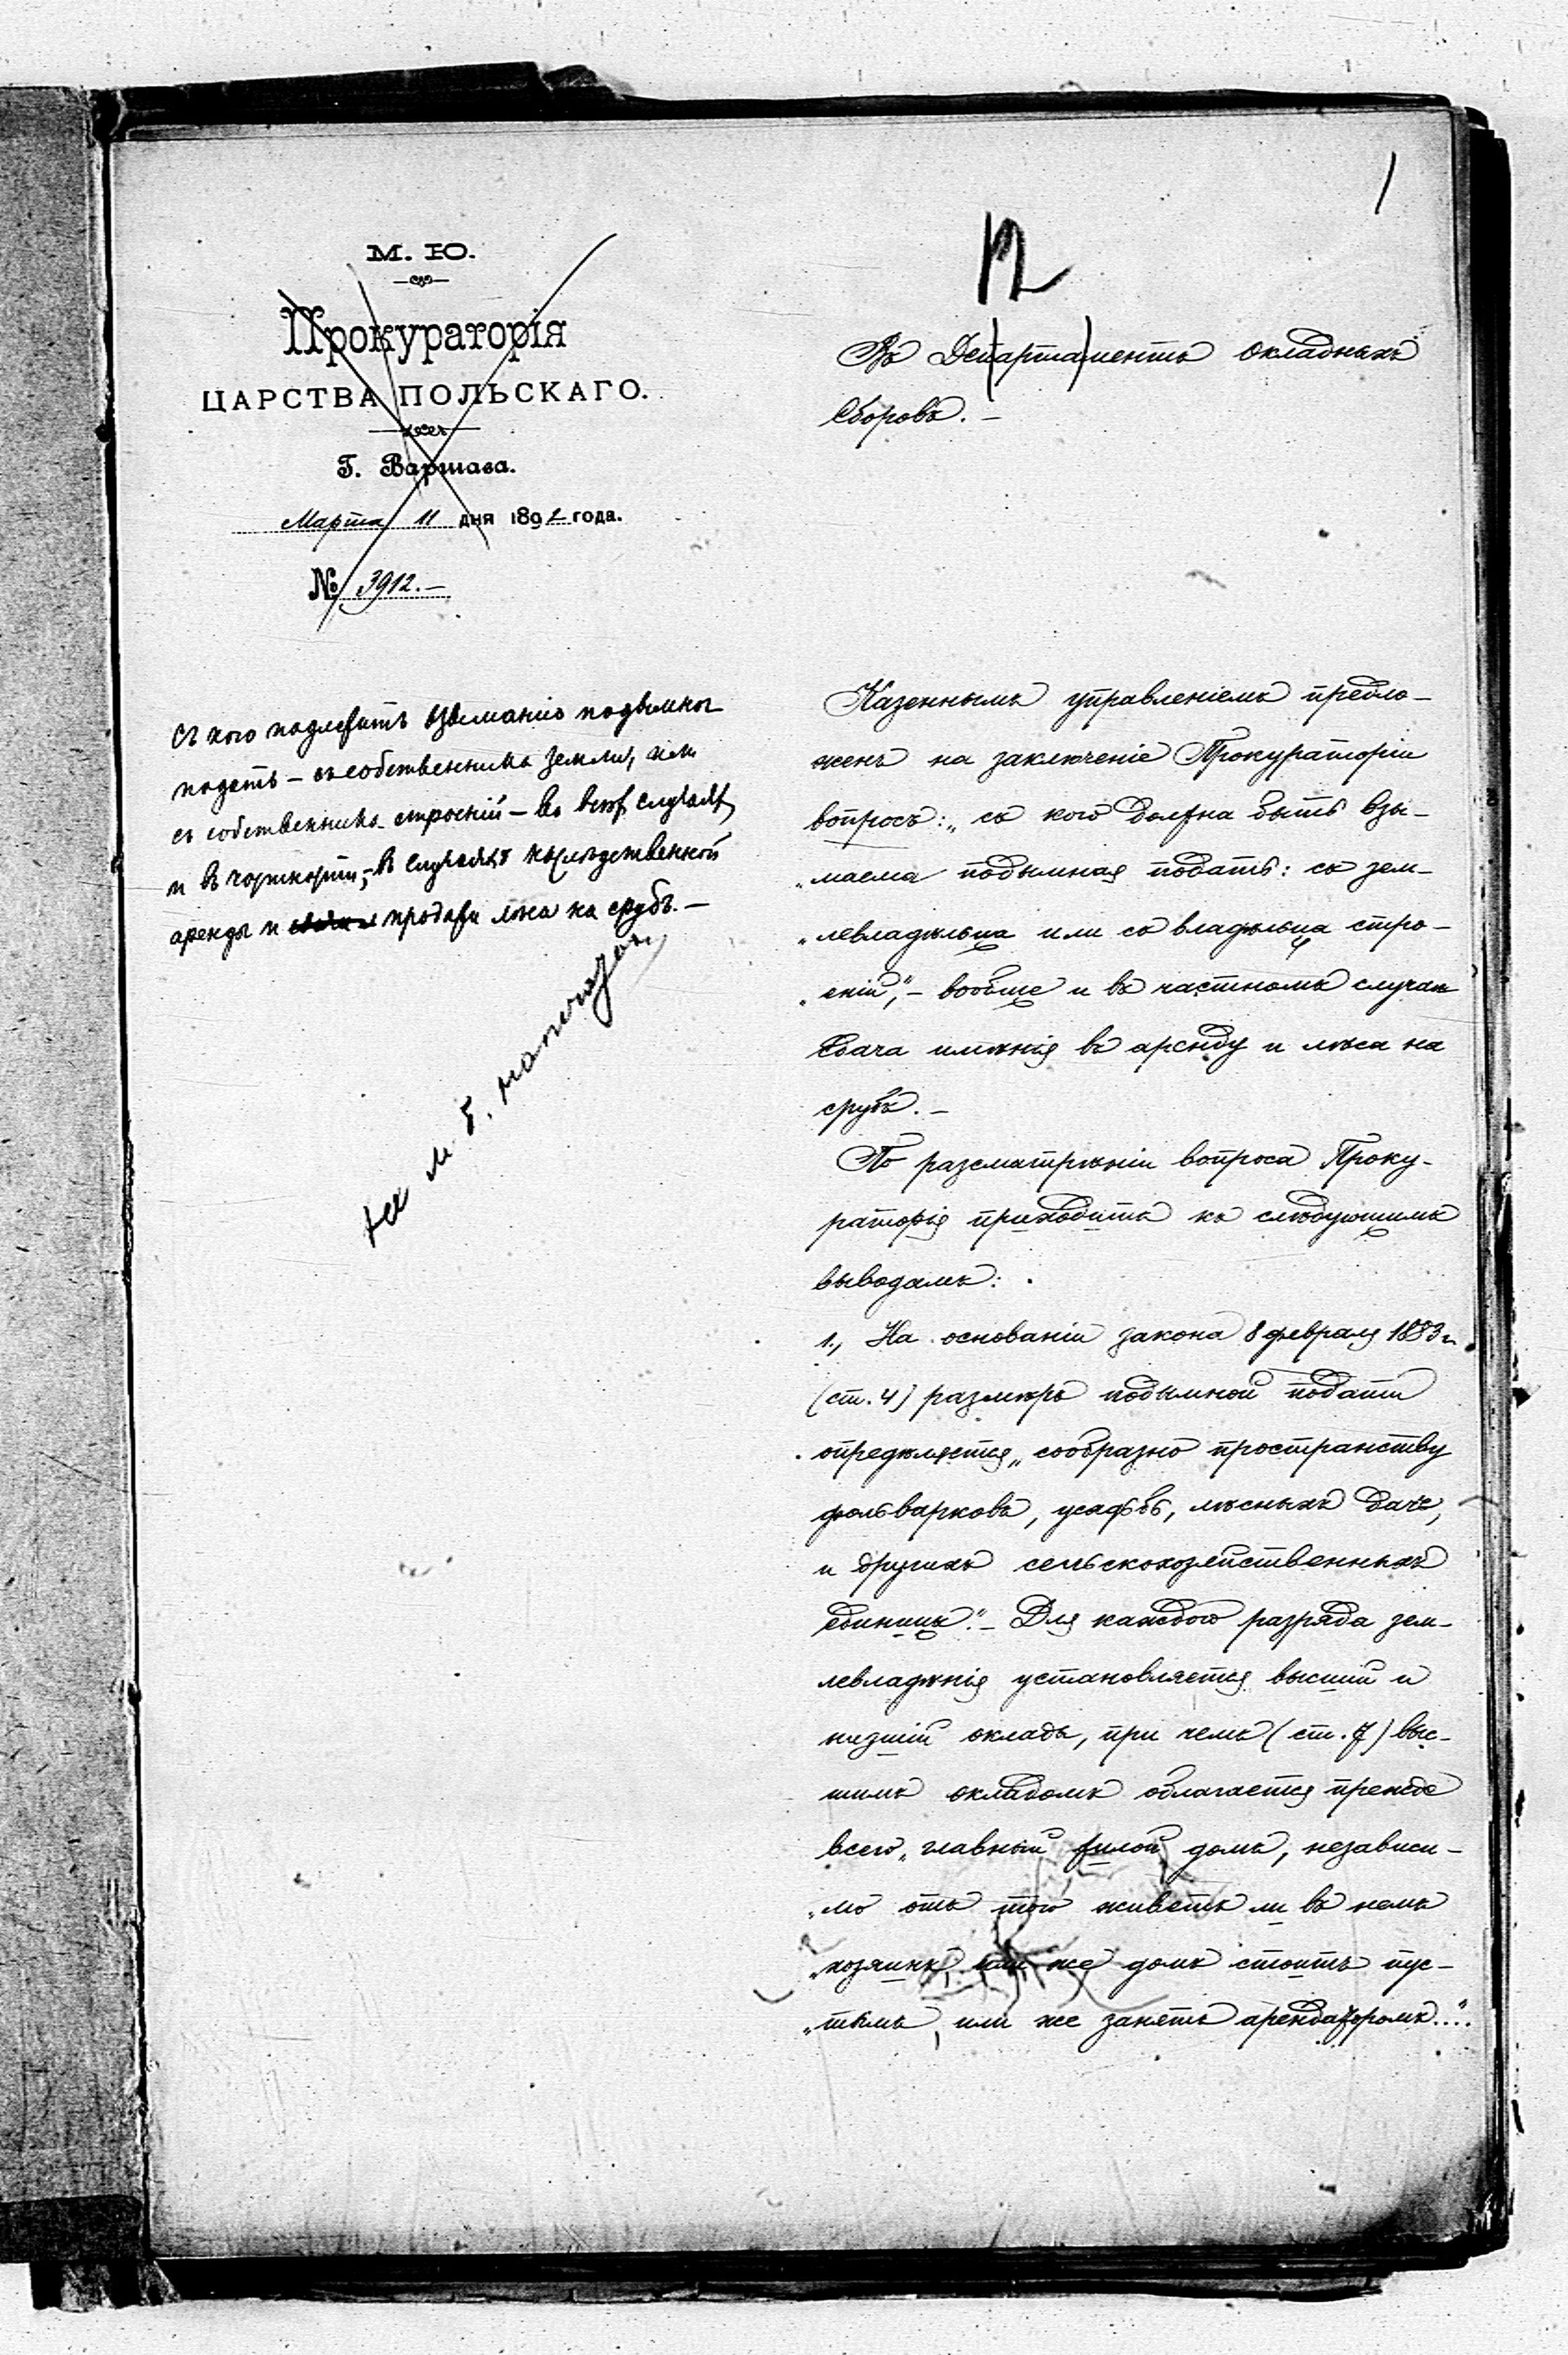 1
12
М. Ю.
Прокураторія
ЦАРСТВА ПОЛЬСКАГО.
Г. Варшава.
Марта 11 дня 1892 года.
№ 3912.—
Въ Департаментъ Окладныхъ
Сборовъ. —
Съ кого подлежитъ взиманію подымная
подать — съ собственника земли, или
съ собственника строеній — во всѣхъ случаяхъ
и въ частности, — въ случаяхъ наслѣдственной
аренды и продажи лѣса на срубъ. —
Казеннымъ управленіемъ предло-
женъ на заключеніе Прокураторіи
вопросъ: „съ кого должна быть взи-
„маема подымная подать: съ зем-
„левладѣльца или съ владѣльца стро-
„еній,“ — вообще и въ частномъ случаѣ
сдача имѣнія въ аренду и лѣса на
срубъ. —
По разсмотрѣніи вопроса Проку-
раторія приходитъ къ слѣдующимъ
выводамъ:
1., На основаніи закона 8 февраля 1883 г.
(ст. 4) размѣръ подымной подати
опредѣляется „сообразно пространству
фольварковъ, усадьбъ, лѣсныхъ дачъ,
и другихъ сельскохозяйственныхъ
единицъ“. — Для каждого разряда зем-
левладѣнія установляется высшій и
низшій окладъ, при чемъ (ст. 7) выс-
шимъ окладомъ облагается прежде
всего „главный жилой домъ, независи-
„мо отъ того живетъ ли въ немъ
„хозяинъ или же домъ стоитъ пус-
„тымъ, или же занятъ арендаторомъ....“